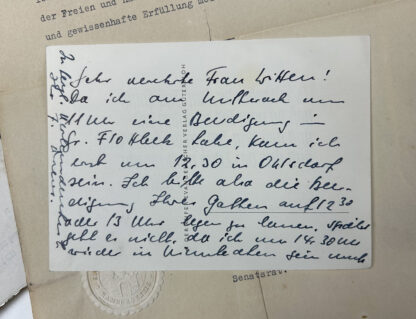 der Freien und Ha
und gewissenhafte Erfüllung me
Sehr verehrte Frau Witten!
Da ich am Mittwoch um
11 Uhr eine Beerdigung in
Gr. Flottbek habe, kann ich
erst um 12.30 in Ohlsdorf
sein. Ich bitte also die Beer-
digung Ihres Gatten auf 12 30
oder 13 Uhr legen zu lassen. Später
geht es nicht, da ich um 14.30 Uhr
wieder in Nienstedten sein muss
VERLAG GÜTERSLOH
Senatsrat.